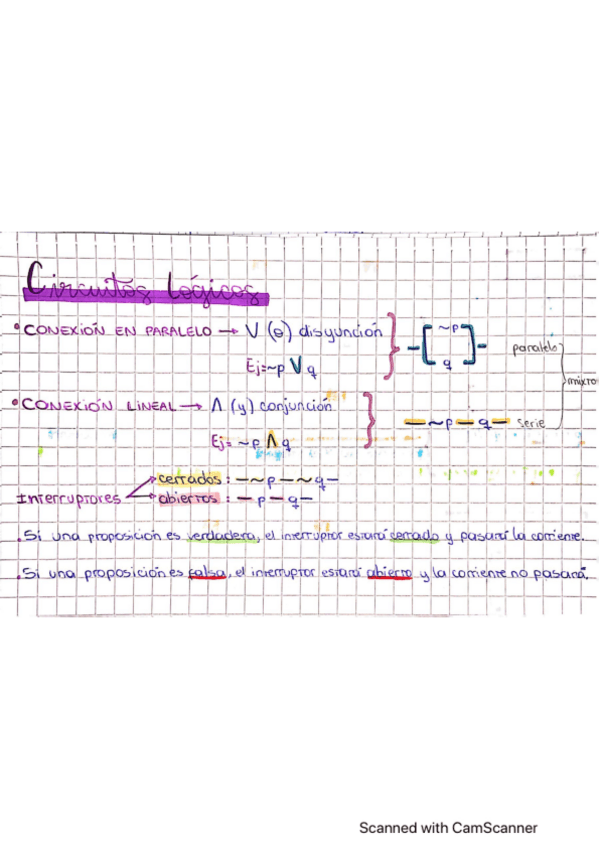 Circuitos Lógicos
• CONEXIÓN EN PARALELO → V (o) disyunción
Ej= ~p V q
~p
q
paralelo
mixto
• CONEXIÓN LINEAL → Λ (y) conjunción
Ej= ~p Λ q
— ~p — q — serie
Interruptores
cerrados: — ~p — ~q —
abiertos: — p — q —
. Si una proposición es verdadera, el interruptor estará cerrado y pasará la corriente.
. Si una proposición es falsa, el interruptor estará abierto y la corriente no pasará.
Scanned with CamScanner